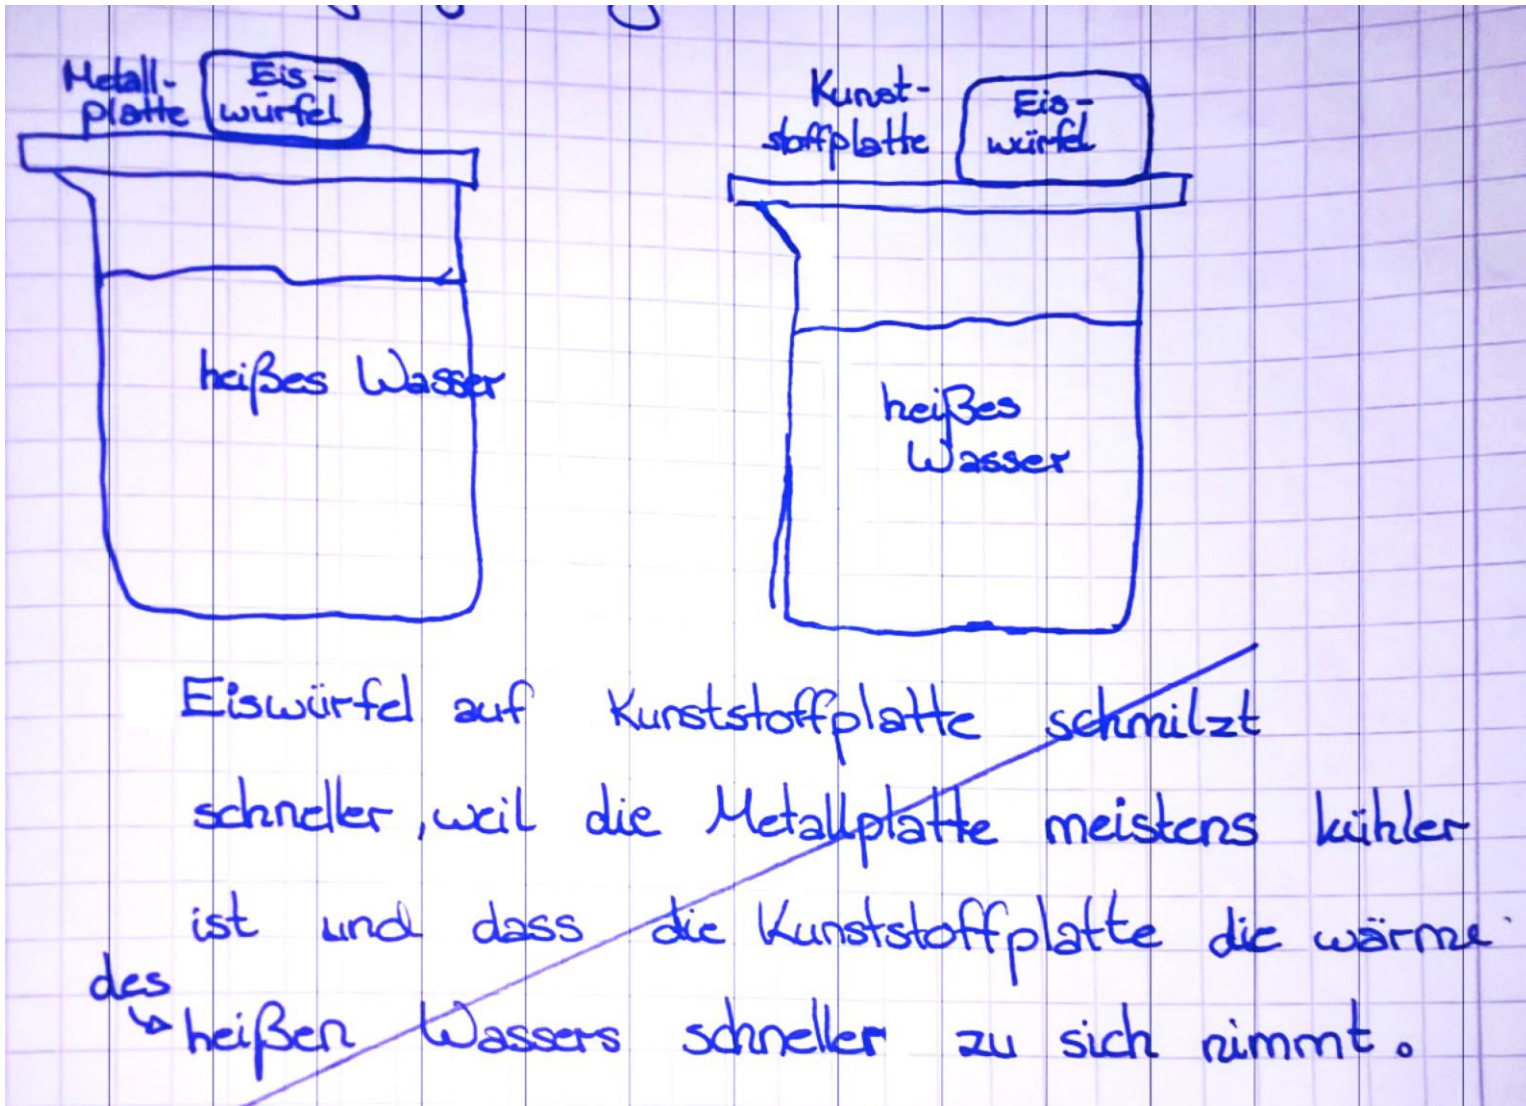 Metall-
platte
Eis-
würfel
Kunst-
stoffplatte
Eis-
würfel
heißes Wasser
heißes
Wasser
Eiswürfel auf Kunststoffplatte schmilzt
schneller, weil die Metallplatte meistens kühler
ist und dass die Kunststoffplatte die wärme
des
heißen Wassers schneller zu sich nimmt.